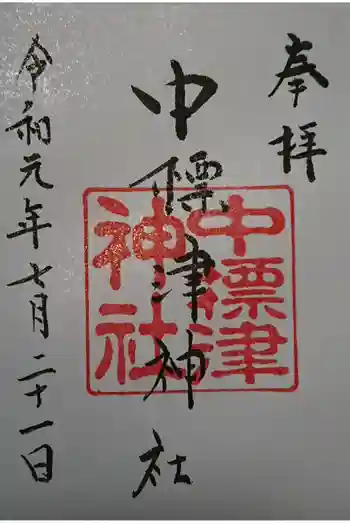 奉拝
中標津神社
中標津
神社
令和元年七月二十一日